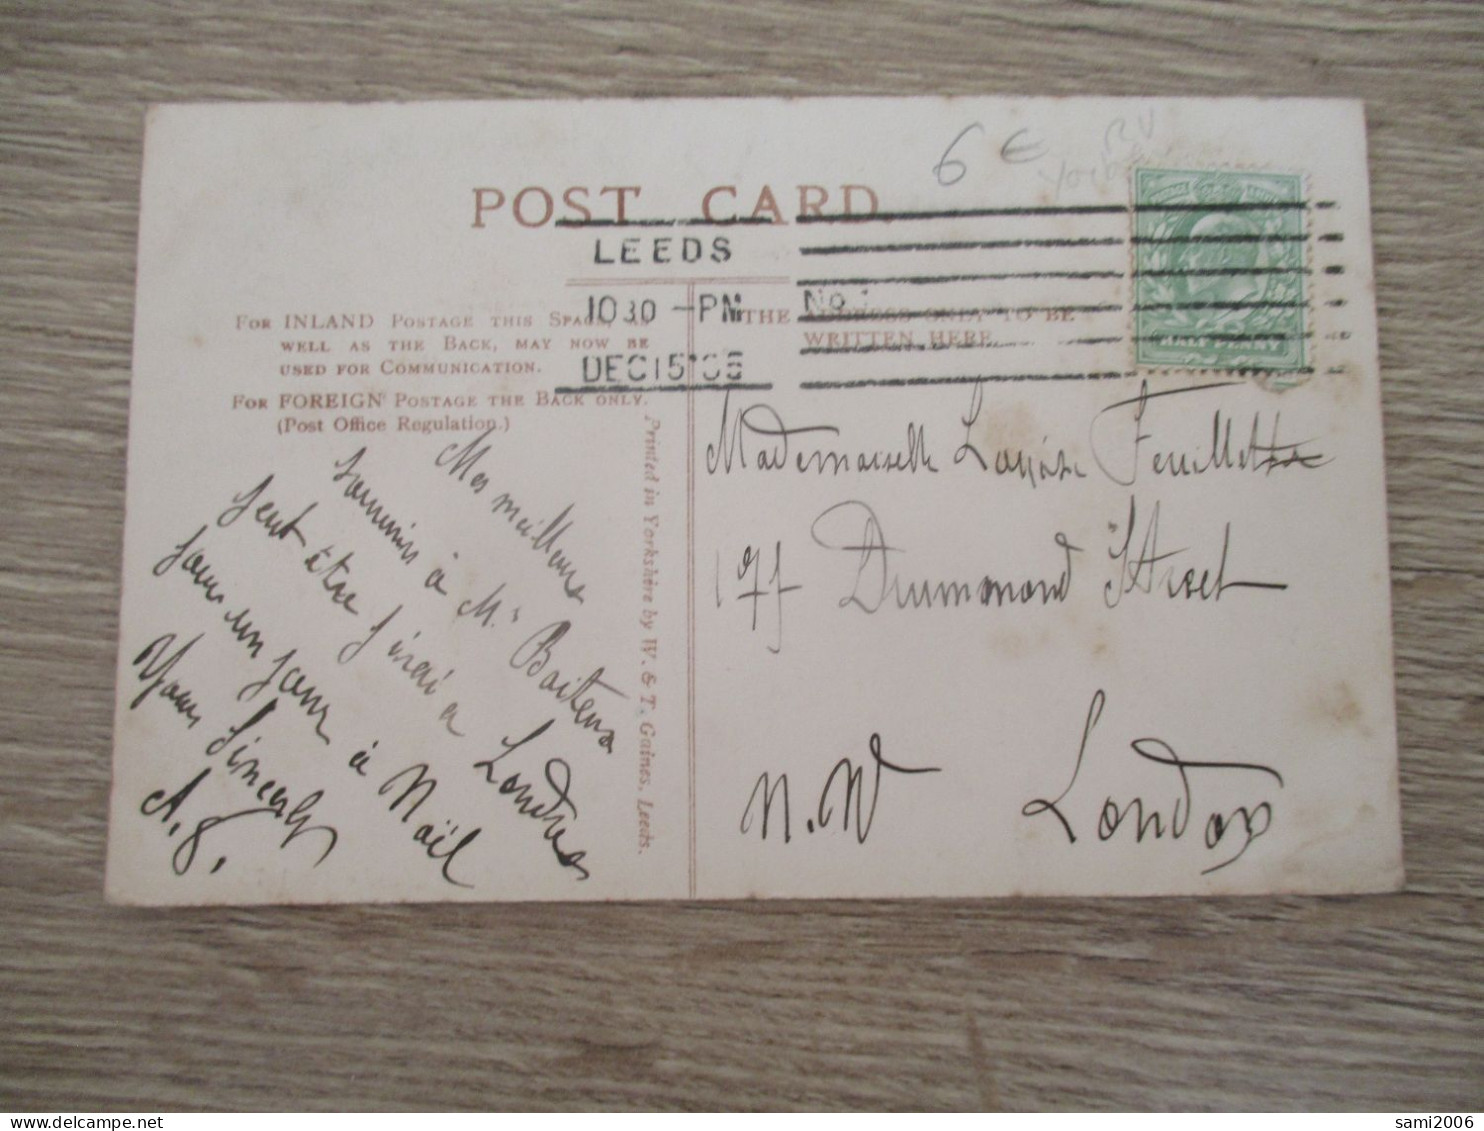 6 €
RV
POST CARD
LEEDS
1030 - PM
DEC 15 '05
No 1
FOR INLAND POSTAGE THIS SPACE, AS
WELL AS THE BACK, MAY NOW BE
USED FOR COMMUNICATION.
FOR FOREIGN POSTAGE THE BACK ONLY.
(Post Office Regulation.)
THE ADDRESS ONLY TO BE
WRITTEN HERE.
HALF PENNY
Mes meilleurs
souvenirs à Mr
peut être j'irai à Londres
pour un jour à Noël
Yours Sincerely
Printed in Yorkshire by W. & T. Gaines, Leeds.
Mademoiselle Feuillette
177 Drummond Street
N.W London
sami2006